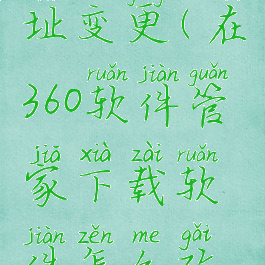 址变更(在
ruǎn jiàn guǎn
360软件管
jiā xià zài ruǎn
家下载软
jiàn zěn me gǎi
件怎么改